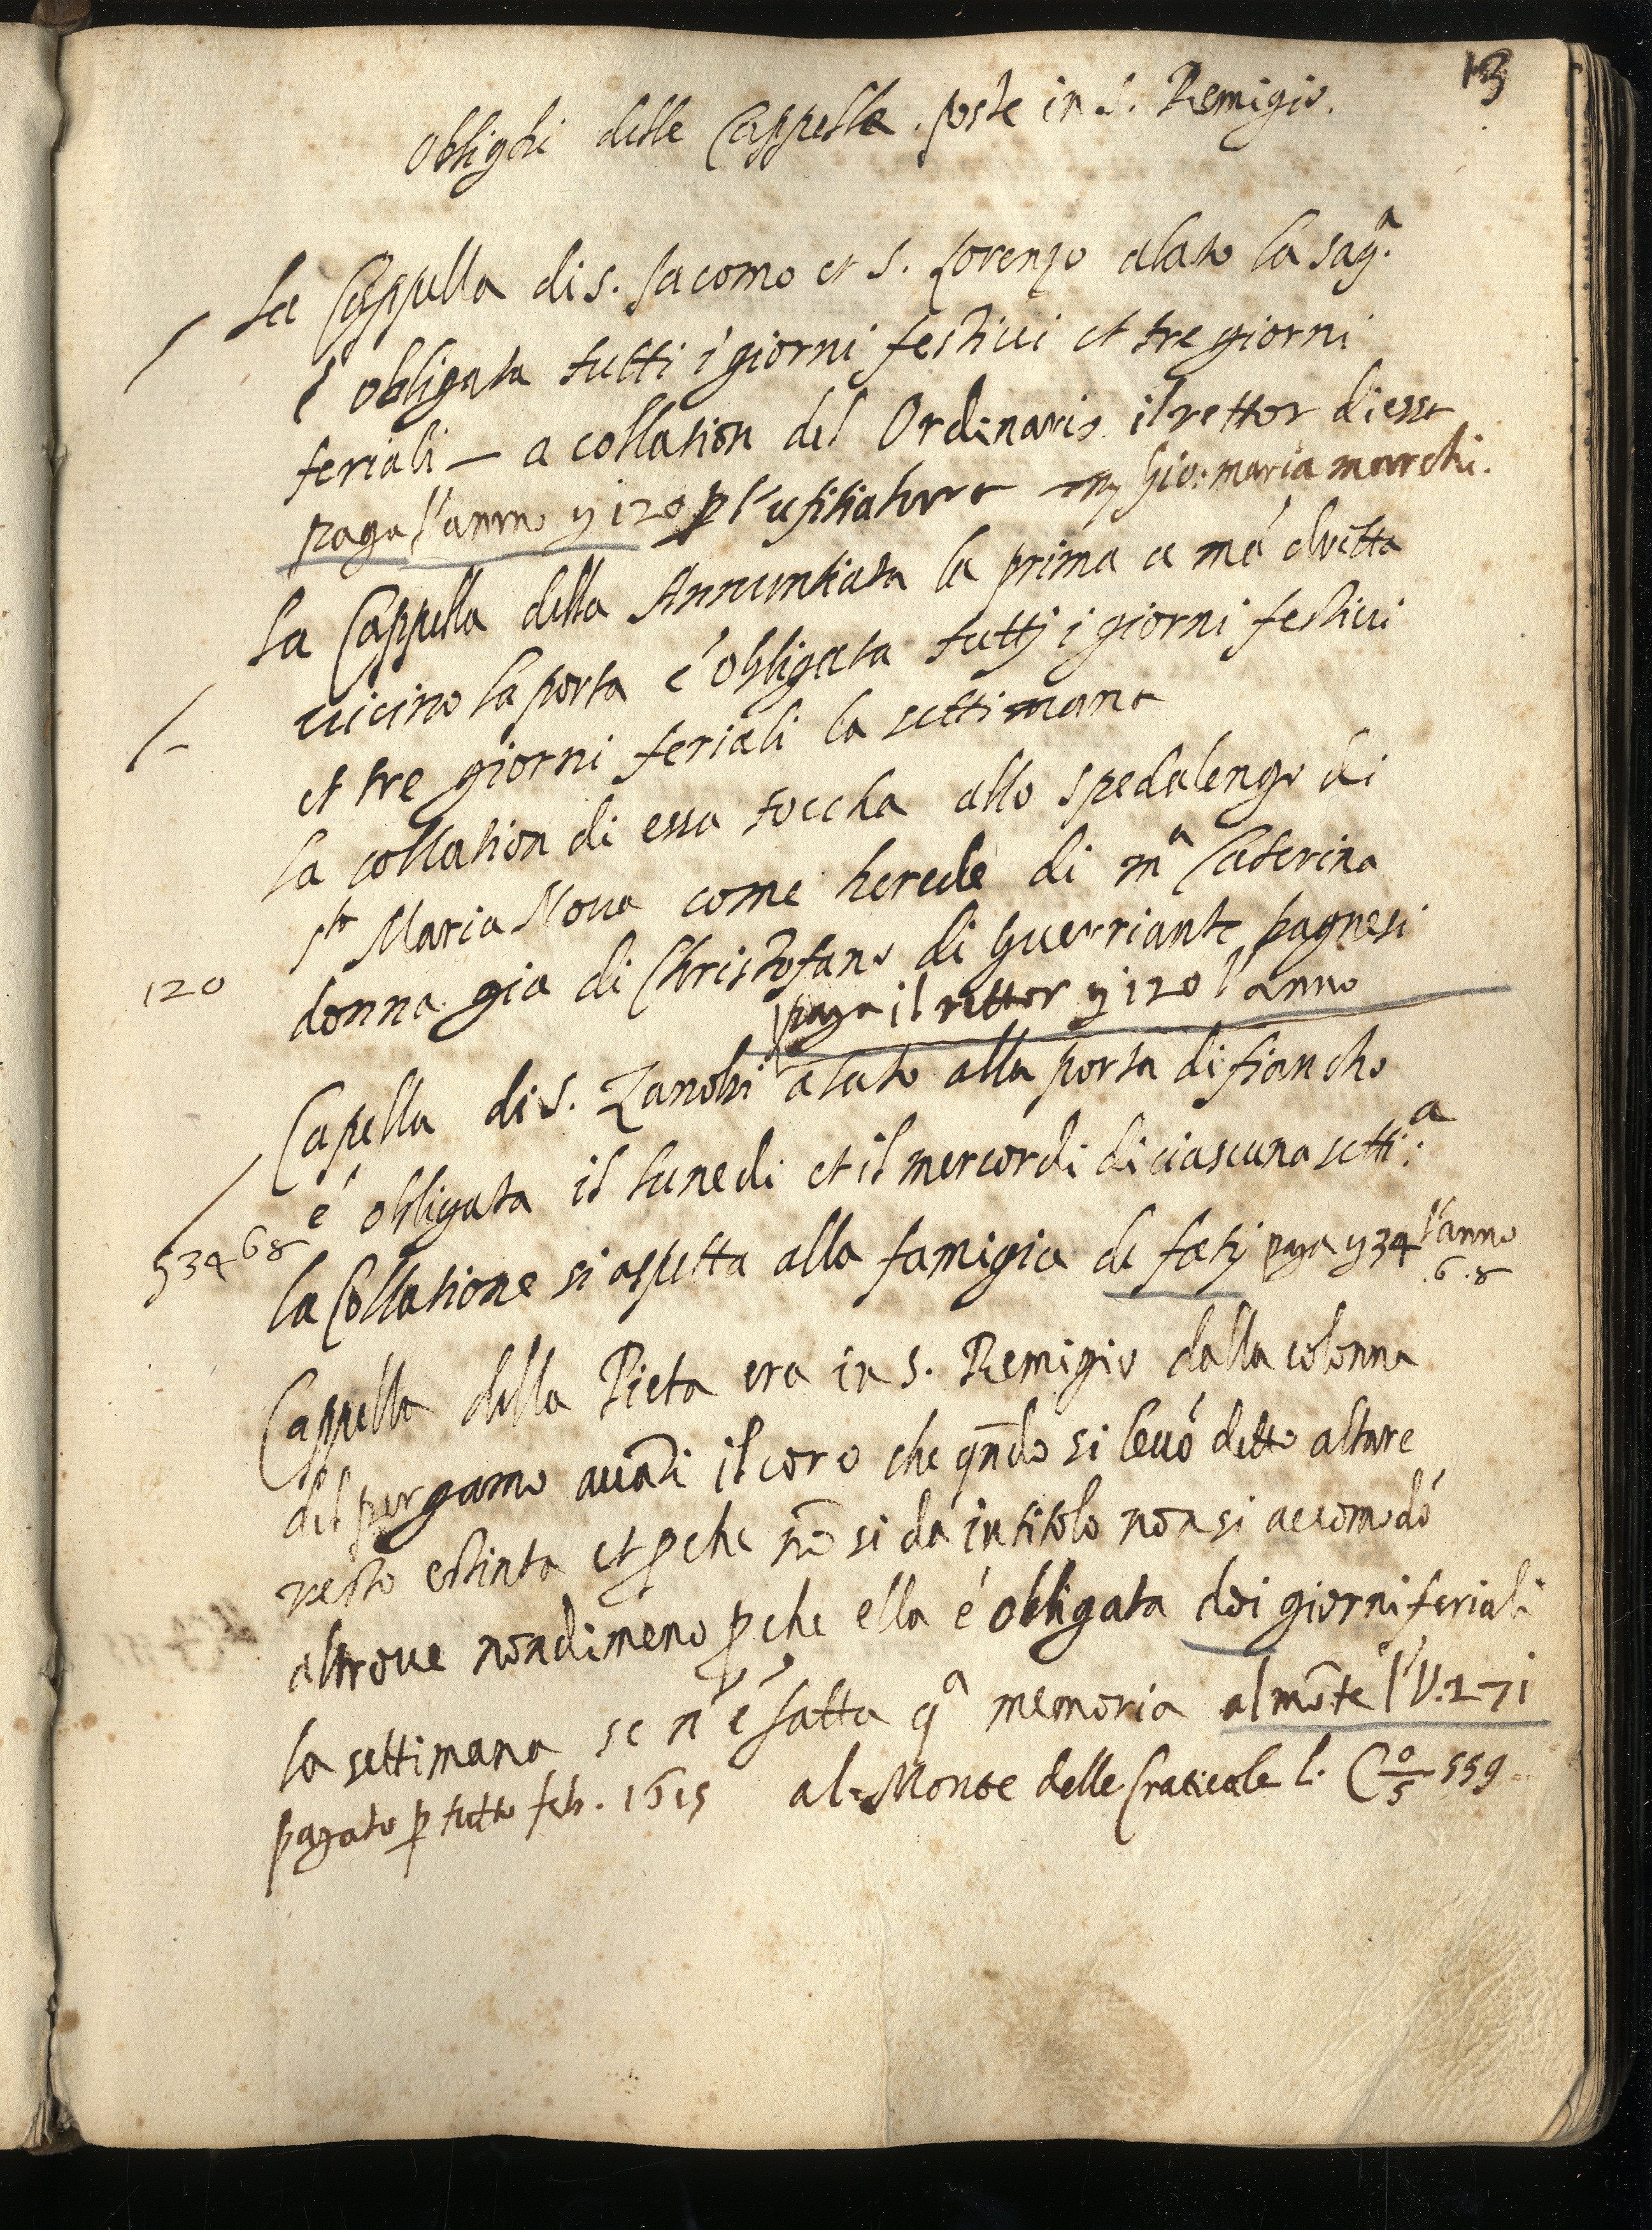 13
Oblighi delle Cappelle poste in S. Remigio.
La Cappella di s. Jacomo et S. Lorenzo alato la sagª.
è obligata tutti i giorni festiui et tre giorni
feriali — a collation del Ordinario il rettor di essa
paga l'anno 120 p l'ufitiatura Gio: maria marchi.
La Cappella della Annuntiata la prima a mà dritta
uicino la porta é obligata tutti i giorni festiui
et tre giorni feriali la settimana
la collation di essa toccha allo spedalengo di
Sta Maria Noua come herede di mª Caterina
120 donna gia di Christofano di Guerriante bagnesi
paga il rettor 120 l'anno
Capella di S. Zanobi alato alla porta di fiancho
é obligata il lunedi et il mercordi di ciascuna settiª.
34 6 8 la Collatione si aspetta alla famigia de fatij paga 34 6.8 l'anno
Cappella della Pieta era in s. Remigio dalla colonna
del pergamo auāti il coro che qñdo si leuò detto altare
resto estinta et pche nõ si dà in titolo non si accomodò
altroue nondimeno pche ella é obligata doi giorni feriali
la settimana se n'é fatta qª memoria al mõte
pagato p tutto feb. 1615 al Monte delle Graticole l. C 0/5 559